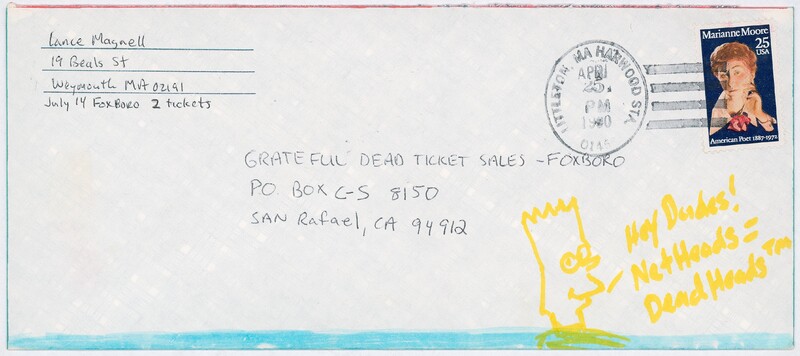 Lance Magnell
19 Beals St
Weymouth MA 02191
July 14 Foxboro 2 tickets
LITTLETON, MA HARWOOD STA.
APR
25
PM
1990
0146
Marianne Moore
25
USA
American Poet 1887-1972
GRATEFUL DEAD TICKET SALES - FOXBORO
PO BOX C-S 8150
SAN Rafael, CA 94912
Hey Dudes!
NetHeads =
DeadHeads™